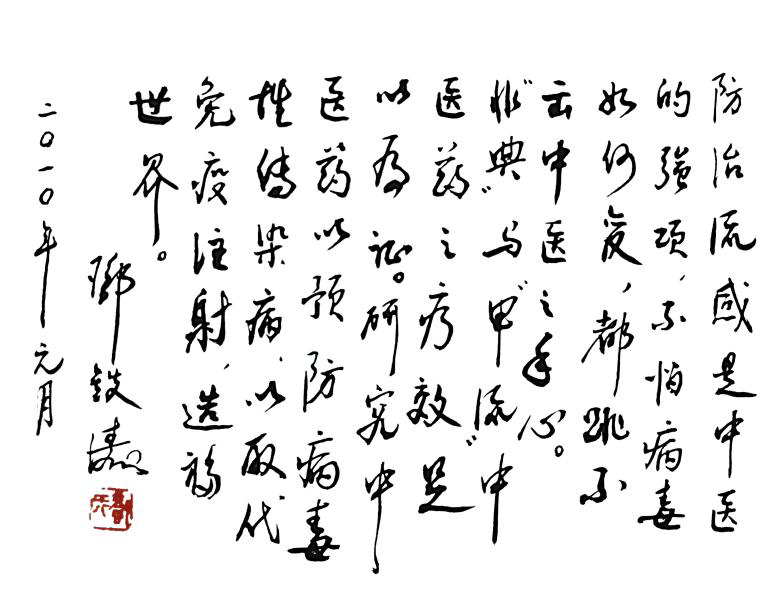 防治流感是中医
的强项,不怕病毒
如何变,都跳不
出中医之手心。
"非典"与"甲流"中
医药之疗效足
以为证。研究中
医药以预防病毒
性传染病,以取代
免疫注射,造福
世界。
鄧鐵濤
二〇一〇年元月